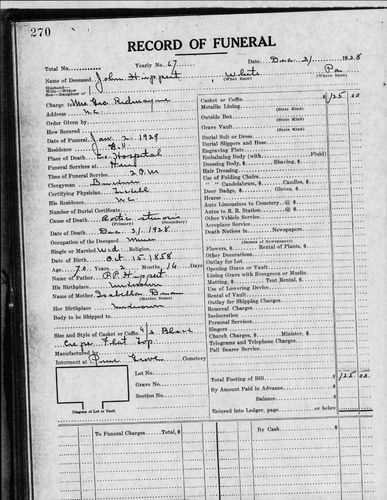 270
RECORD OF FUNERAL
Total No. Yearly No. 67 Date Dec 31 1928
Name of Deceased John Hippert White Pa
(What Race) (Where Born)
Husband—
Wife—Widow
Son—Daughter of
Charge Mrs Geo
Address W.C.
Order Given by
How Secured
Date of Funeral Jan 2 1929
Residence
Place of Death Co. Hospital
Funeral Services at
Time of Funeral Service 2 P.M
Clergyman
Certifying Physician
His Residence W.C.
Number of Burial Certificate
Cause of Death
(Primary) (Secondary)
Date of Death Dec 31/1928
Occupation of the Deceased Miner
Single or Married Wid Religion
Date of Birth Oct 15, 1858
Aged 70 Years 2 Months 16 Days
Name of Father P.P. Hippert
His Birthplace Unknown
Name of Mother Isabella
(Maiden Name)
Her Birthplace Unknown
Body to be Shipped to
Size and Style of Casket or Coffin
Flat Top
Manufactured by
Interment at Grove Cemetery
Lot No.
Grave No.
Section No.
Diagram of Lot or Vault
Casket or Coffin $ 125 00
(State Kind)
Metallic Lining
(State Kind)
Outside Box
(State Kind)
Grave Vault
(State Kind)
Burial Suit or Dress
Burial Slippers and Hose
Engraving Plate
Embalming Body (with Fluid)
Dressing Body, $ Shaving, $
Hair Dressing
Use of Folding Chairs
" " Candelabrum, $ Candles, $
Door Badge, $ Gloves, $
Hearse
Auto Limousines to Cemetery, @ $
Autos to R. R. Station, @ $
Other Vehicle Service
Aeroplane Service
Death Notices in Newspapers
(Names of Newspapers)
Flowers, $ Rental of Plants, $
Other Decorations
Outlay for Lot
Opening Grave or Vault
Lining Grave with Evergreen or Muslin
Matting, $ Tent Rental, $
Use of Lowering Device
Rental of Vault
Outlay for Shipping Charges
Removal Charges
Incineration
Personal Services
Singers
Church Charges, $ Minister, $
Telegrams and Telephone Charges
Pall Bearer Service
Total Footing of Bill $ 125 00
By Amount Paid in Advance
Balance
Entered into Ledger, page or below
To Funeral Charges Total, $ $ By Cash $